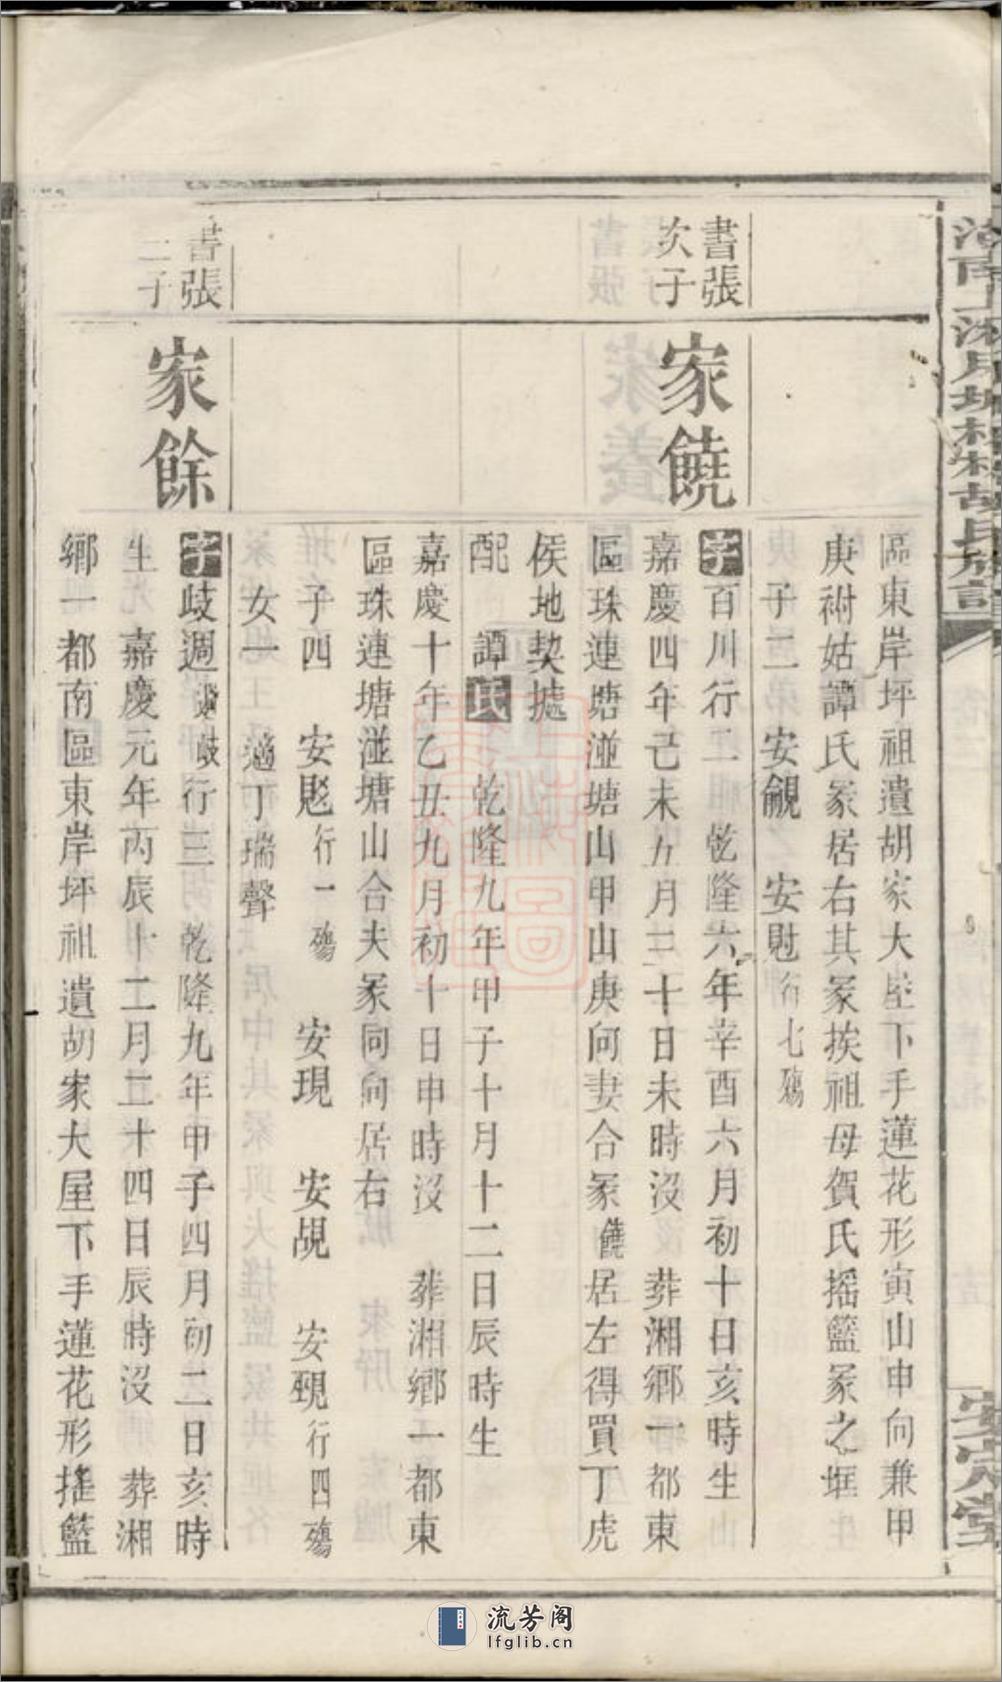 胡氏族譜
安定堂
區東岸坪祖遺胡家大屋下手蓮花形寅山申向兼甲
庚祔姑譚氏冢居右其冢挨祖母賀氏搖籃冢之堀
子二 安覦 安 行七殤
書張
次子
家饒
字百川行二 乾隆六年辛酉六月初十日亥時生
嘉慶四年己未五月三十日未時沒 葬湘鄉一都東
區珠連塘湴塘山甲山庚向妻合冢饒居左得買丁虎
侯地契據
配 譚氏 乾隆九年甲子十月十二日辰時生
嘉慶十年乙丑九月初十日申時沒 葬湘鄉一都東
區珠連塘湴塘山合夫冢同向居右
子四 安 行一殤 安現 安覘 安 行四殤
女一 適丁瑞聲
書張
三子
家餘
字歧週 歧行三 乾隆九年甲子四月初二日亥時
生 嘉慶元年丙辰十二月二十四日辰時沒 葬湘
鄉一都南區東岸坪祖遺胡家大屋下手蓮花形搖籃
流芳阁
lfglib.cn